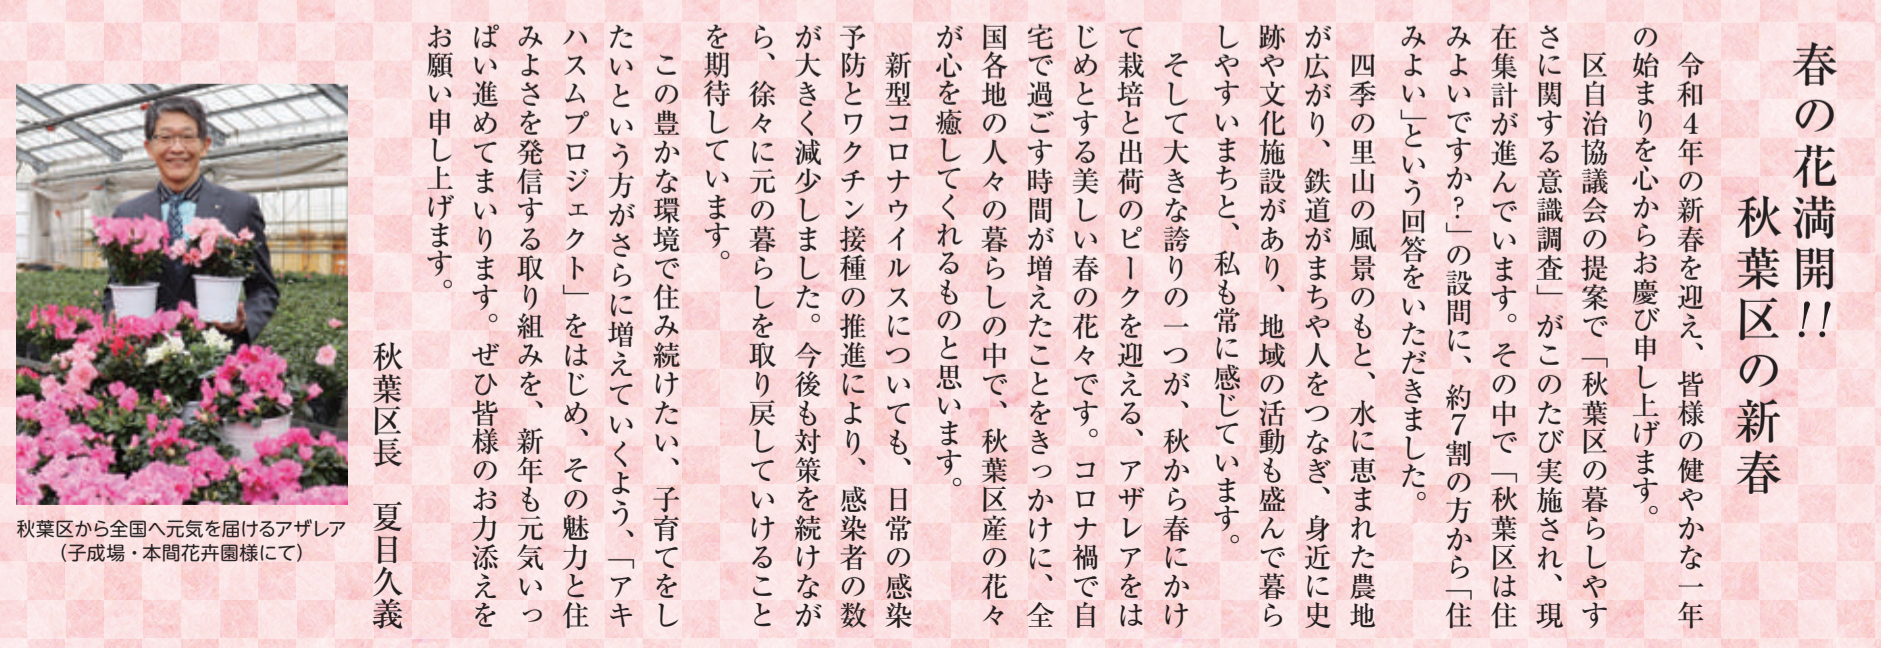 春の花満開!!
秋葉区の新春
令和４年の新春を迎え、皆様の健やかな一年
の始まりを心からお慶び申し上げます。
区自治協議会の提案で「秋葉区の暮らしやす
さに関する意識調査」がこのたび実施され、現
在集計が進んでいます。その中で「秋葉区は住
みよいですか?」の設問に、約７割の方から「住
みよい」という回答をいただきました。
四季の里山の風景のもと、水に恵まれた農地
が広がり、鉄道がまちや人をつなぎ、身近に史
跡や文化施設があり、地域の活動も盛んで暮ら
しやすいまちと、私も常に感じています。
そして大きな誇りの一つが、秋から春にかけ
て栽培と出荷のピークを迎える、アザレアをは
じめとする美しい春の花々です。コロナ禍で自
宅で過ごす時間が増えたことをきっかけに、全
国各地の人々の暮らしの中で、秋葉区産の花々
が心を癒してくれるものと思います。
新型コロナウイルスについても、日常の感染
予防とワクチン接種の推進により、感染者の数
が大きく減少しました。今後も対策を続けなが
ら、徐々に元の暮らしを取り戻していけること
を期待しています。
この豊かな環境で住み続けたい、子育てをし
たいという方がさらに増えていくよう、「アキ
ハスムプロジェクト」をはじめ、その魅力と住
みよさを発信する取り組みを、新年も元気いっ
ぱい進めてまいります。ぜひ皆様のお力添えを
お願い申し上げます。
秋葉区長　夏日久義
秋葉区から全国へ元気を届けるアザレア
（子成場・本間花卉園様にて）